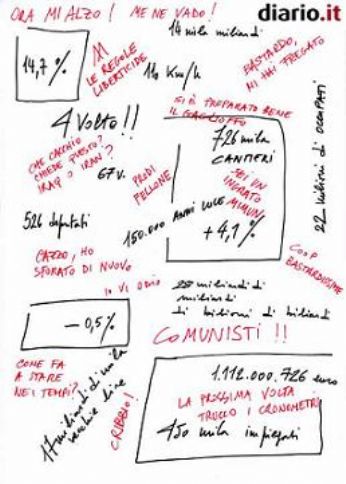 ORA MI ALZO! ME NE VADO!
diario.it
14 mila miliardi
14,7 %
11
LE REGOLE
LIBERTICIDE
110 Km/h
BASTARDO,
MI HAI FREGATO
SI È PREPARATO BENE
IL GAGLIOFFO
4 VOLTO!!
726 mila
CANTIERI
22 milioni di OCCUPATI
CHE CACCHIO
CHIEDE QUESTO?
IRAQ O IRAN?
67 V.
PRODI
FELLONE
SEI UN
INGRATO
MIMUN
526 deputati
150.000 ANNI LUCE
+4,1 %
CAZZO, HO
SFORATO DI NUOVO
COOP
BASTARDISSIME
IO VI ODIO
miliardi di
miliardi
di bilioni di biliardi
-0,5 %
COMUNISTI!!
COME FA
A STARE
NEI TEMPI?
17 miliardi di mila
vecchie lire
CRIBBIO!
1.112.000.726 euro
LA PROSSIMA VOLTA
TRUCCO I CRONOMETRI
450 mila impiegati